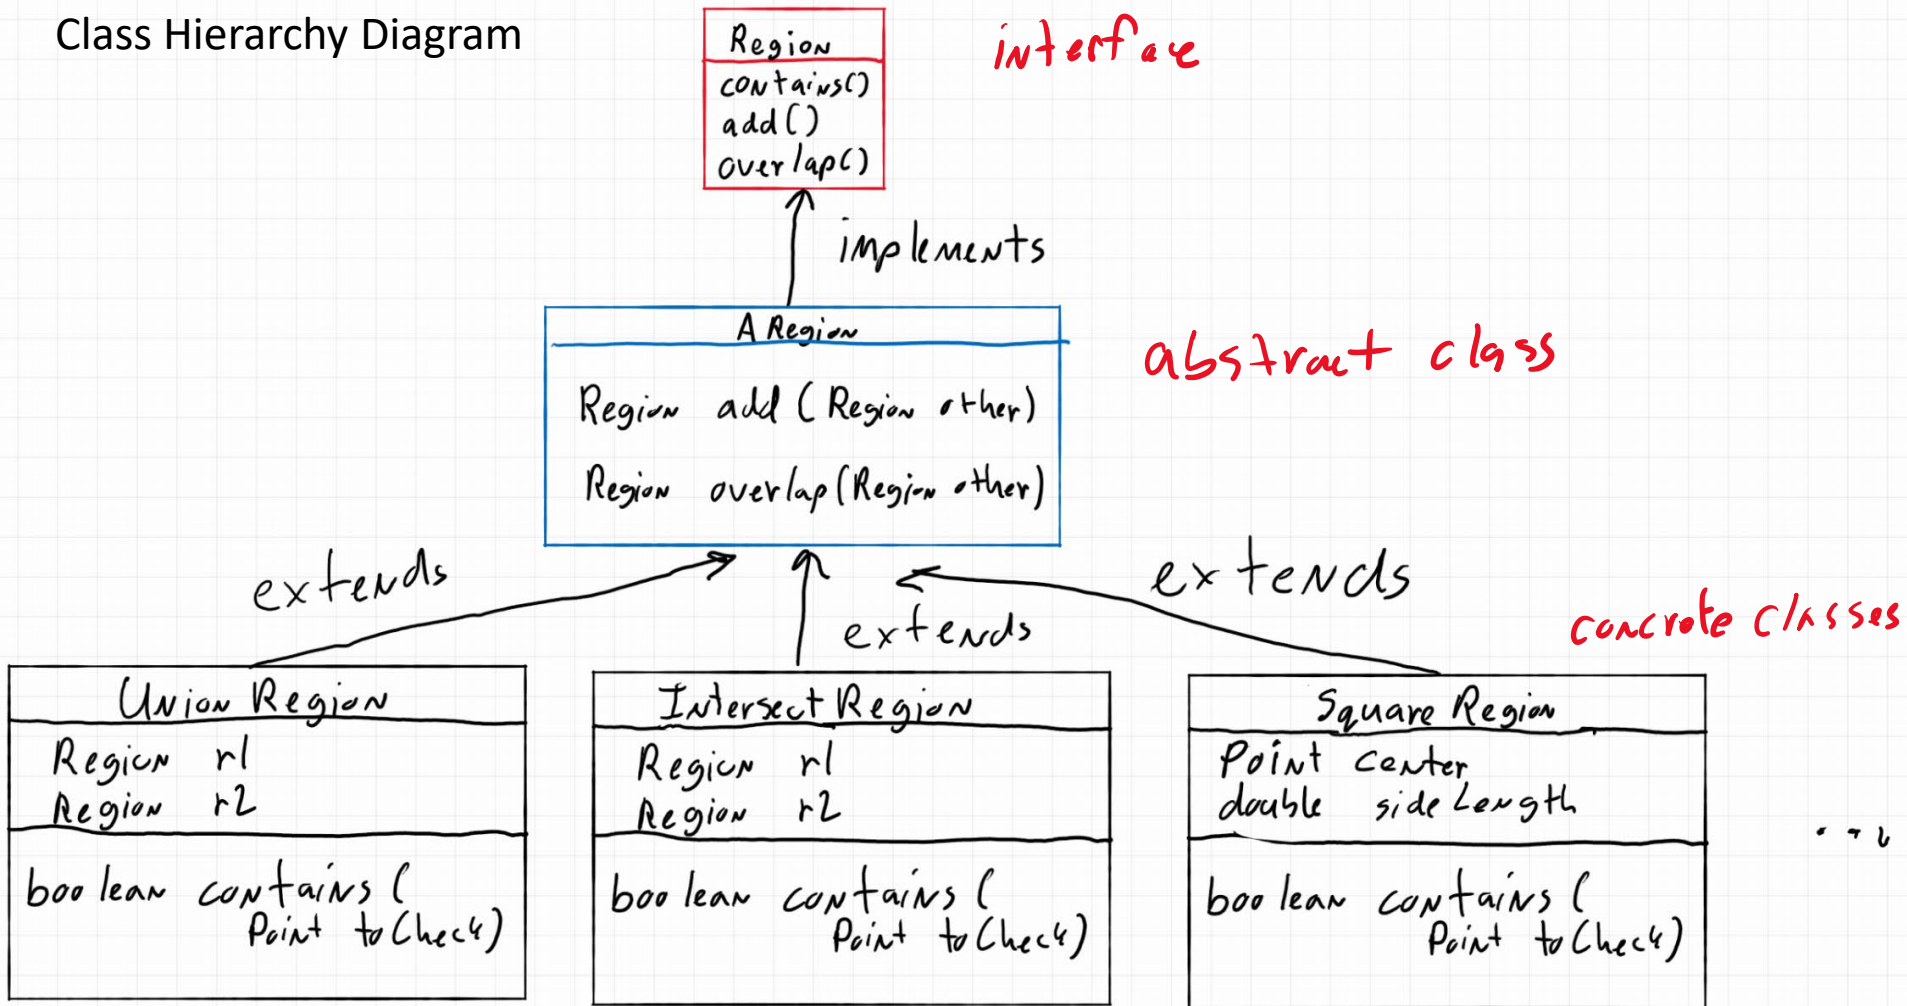 Class Hierarchy Diagram
Region
interface
contains()
add()
overlap()
implements
A Region
abstract class
Region add (Region other)
Region overlap(Region other)
extends
extends
extends
concrete classes
Union Region
Region r1
Region r2
boolean contains(
Point toCheck)
Intersect Region
Region r1
Region r2
boolean contains(
Point toCheck)
Square Region
Point center
double sideLength
boolean contains(
Point toCheck)
...